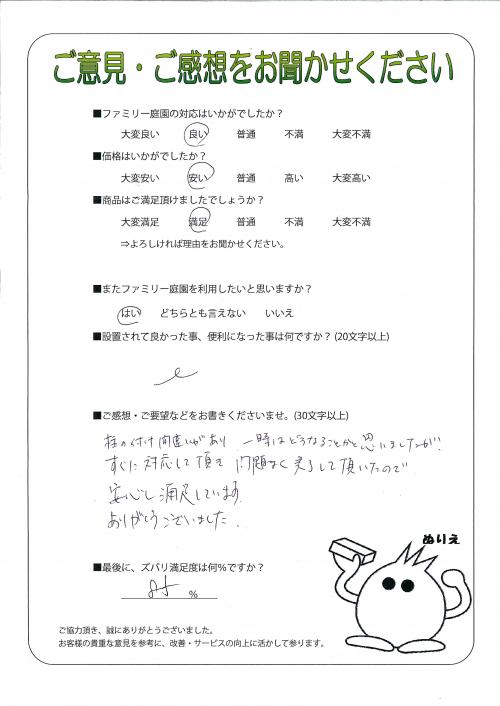 ご意見・ご感想をお聞かせください
■ファミリー庭園の対応はいかがでしたか？
大変良い 良い 普通 不満 大変不満
■価格はいかがでしたか？
大変安い 安い 普通 高い 大変高い
■商品はご満足頂けましたでしょうか？
大変満足 満足 普通 不満 大変不満
⇒よろしければ理由をお聞かせください。
■またファミリー庭園を利用したいと思いますか？
はい どちらとも言えない いいえ
■設置されて良かった事、便利になった事は何ですか？(20文字以上)
■ご感想・ご要望などをお書きくださいませ。(30文字以上)
柱の付け間違いがあり 一時はどうなることかと思いましたが!
すぐに対応して頂き 問題なく完了して頂いたので
安心し満足しています。
ありがとうございました。
ぬりえ
■最後に、ズバリ満足度は何％ですか？
％
ご協力頂き、誠にありがとうございました。
お客様の貴重な意見を参考に、改善・サービスの向上に活かして参ります。